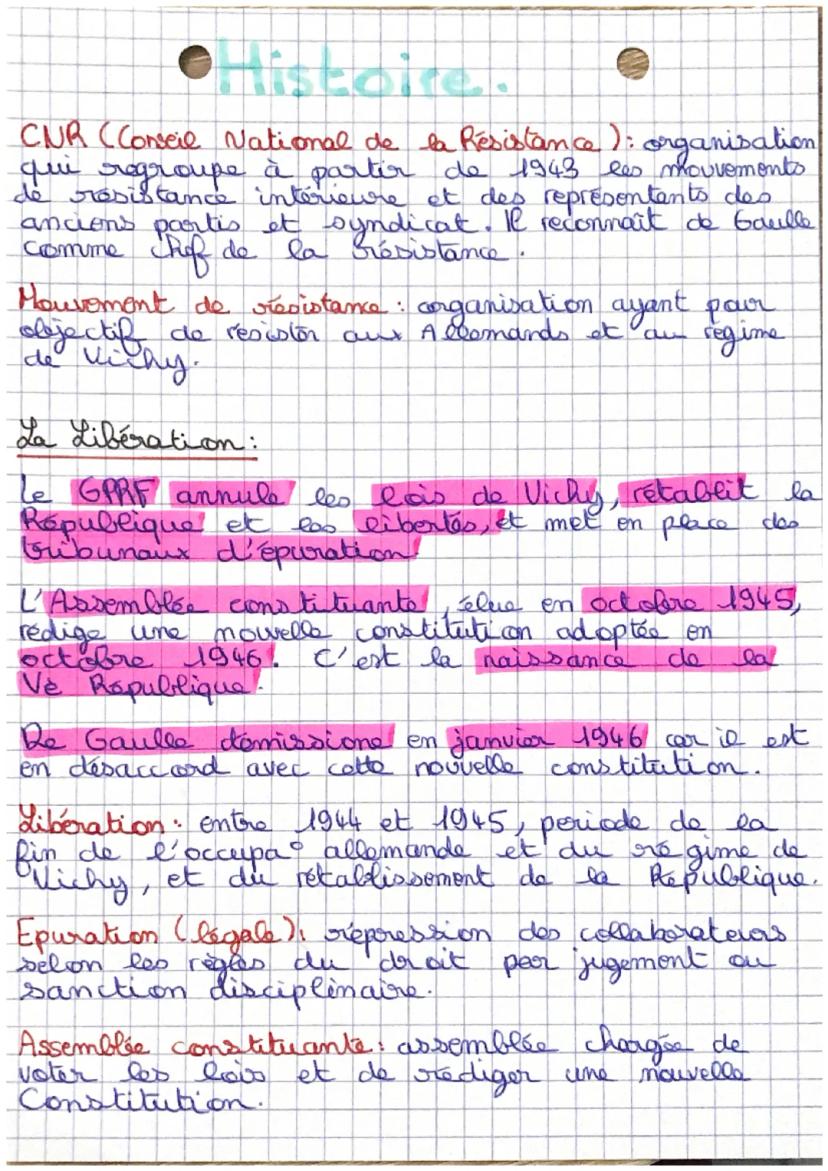 Histoire.
CNR (Conseil National de la Résistance) : organisation
qui regroupe à partir de 1943 les mouvements
de résistance intérieure et des représentants des
anciens partis et syndicat. Il reconnaît de Gaulle
comme chef de la résistance.
Mouvement de résistance : organisation ayant pour
objectif de résister aux Allemands et au régime
de Vichy.
La Libération :
Le GPRF annule les lois de Vichy, rétablit la
République et les libertés, et met en place des
tribunaux d'épuration
L'Assemblée constituante, élue en octobre 1945,
rédige une nouvelle constitution adoptée en
octobre 1946. C'est la naissance de la
Ve République.
De Gaulle démissione en janvier 1946 car il est
en désaccord avec cette nouvelle constitution.
Libération : entre 1944 et 1945, période de la
fin de l'occupa° allemande et du régime de
Vichy, et du rétablissement de la République.
Epuration (légale) : répression des collaborateurs
selon les règles du droit par jugement ou
sanction disciplinaire.
Assemblée constituante : assemblée chargée de
voter les lois et de rédiger une nouvelle
Constitution.